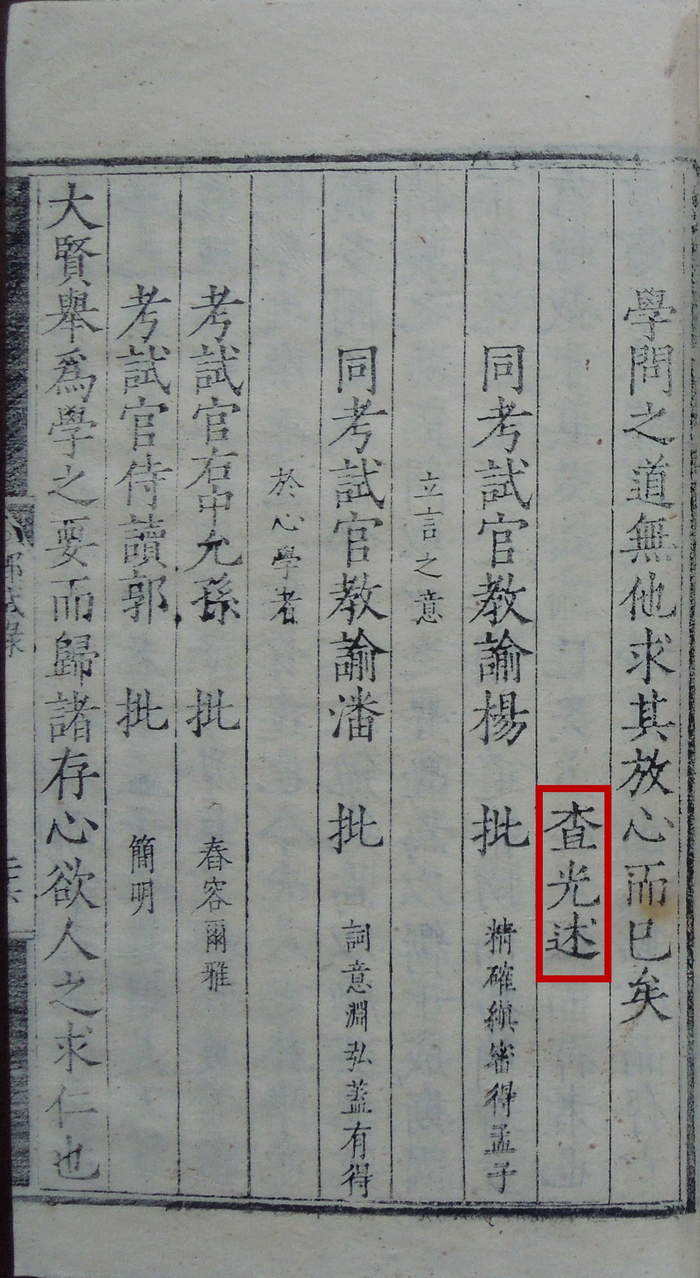 學問之道無他求其放心而已矣
查光述
同考試官教諭楊 批 精確縝密得孟子
立言之意
同考試官教諭潘 批 詞意淵弘葢有得
於心學者
考試官右中允孫 批 春容爾雅
考試官侍讀郭 批 簡明
大賢舉爲學之要而歸諸存心欲人之求仁也